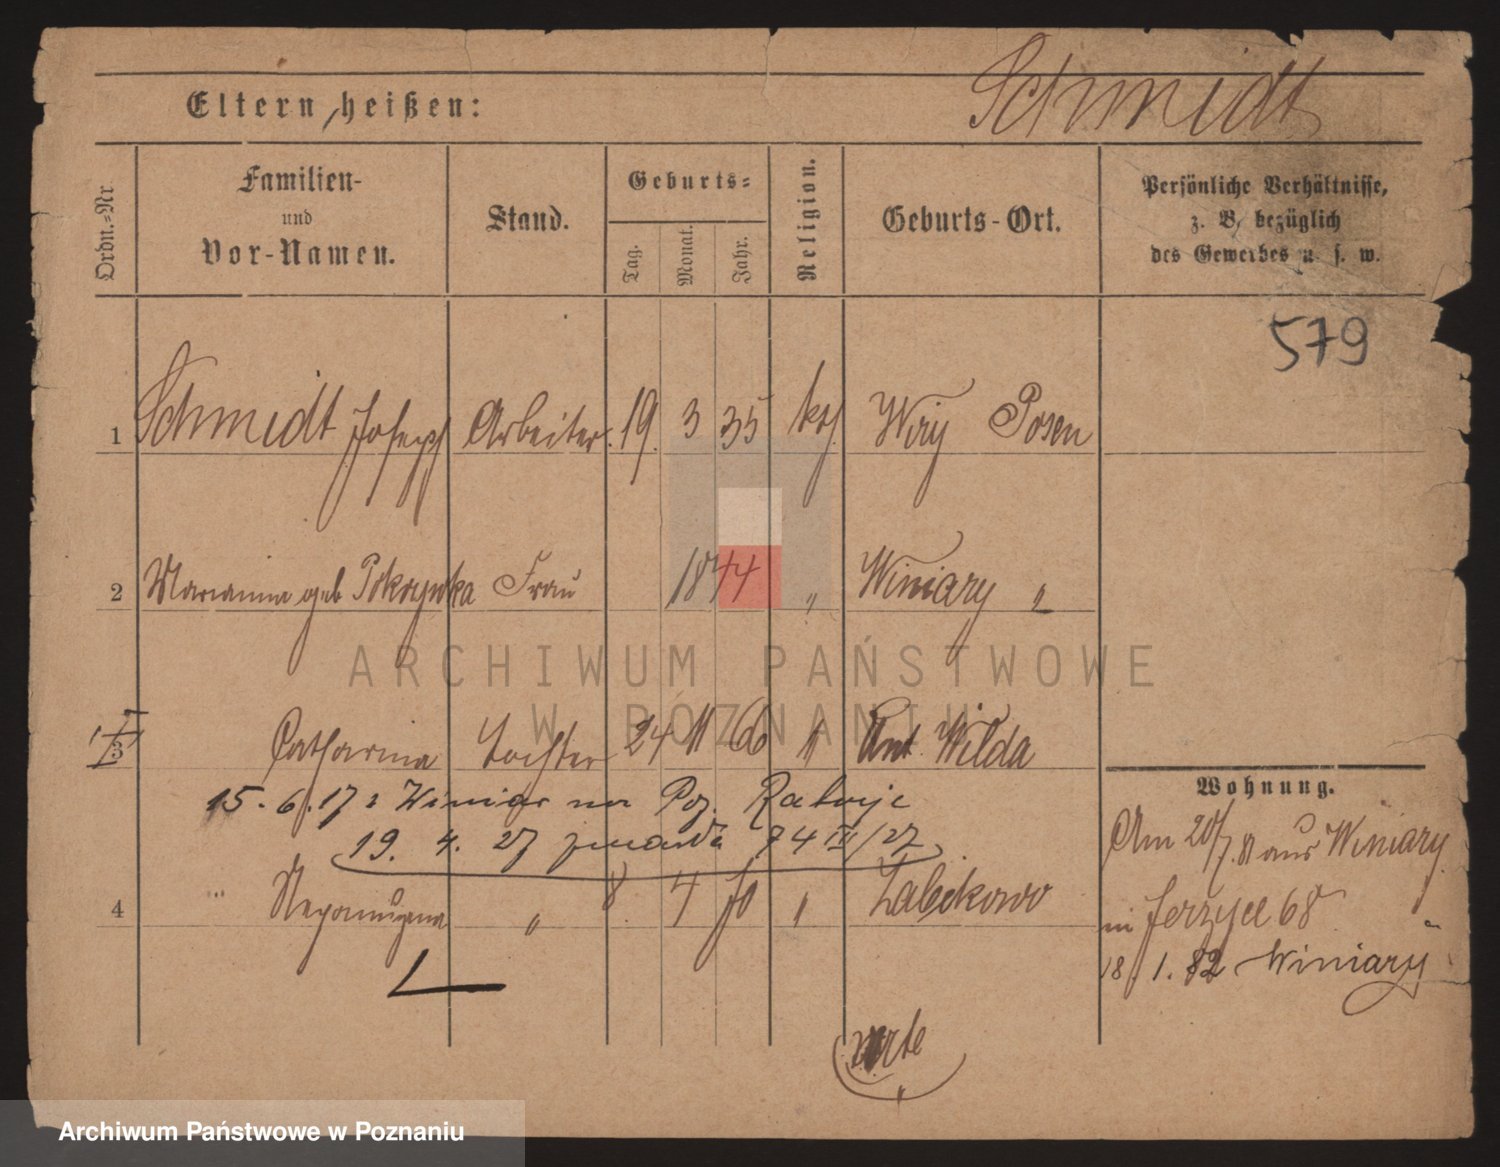 Schmidt
Eltern heißen:
Ordn.-Nr
Familien-
und
Vor-Namen.
Stand.
Geburts-
Tag.
Monat.
Jahr.
Religion.
Geburts-Ort.
Persönliche Verhältnisse,
z. B. bezüglich
des Gewerbes u. s. w.
579
1 Schmidt Joseph Arbeiter 19. 3 35 kath Wiry Posen
2 Marianna geb Pokrywka Frau 1844 " Winiary "
ARCHIWUM PAŃSTWOWE
W POZNANIU
3 Catharina Tochter 24 11 60 " Wilda
Wohnung.
15. 6. 17 Winiar
19. 4. 27 74 III/27
4 " Nepomucena " 8. 4 70 " Zabikowo
Am 20/7. 81 aus Winiary
in Jerzyce 68
18. 1. 82 Winiary
verte
Archiwum Państwowe w Poznaniu